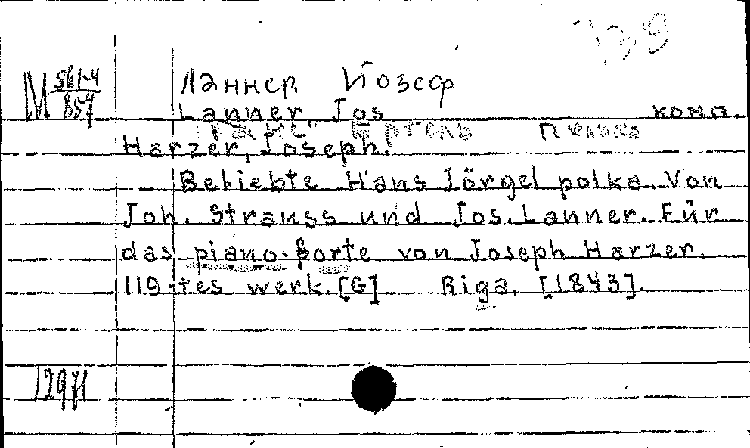 139
М 561-4/857
Ланнер Йозеф
Lanner, Jos комп.
"Ганс Ергель полька
Harzer, Joseph.
Beliebte Hans Jörgel polka. Von
Joh. Strauss und Jos. Lanner. Für
das piano-forte von Joseph Harzer.
119-tes werk. [G] Riga, [1843].
12971